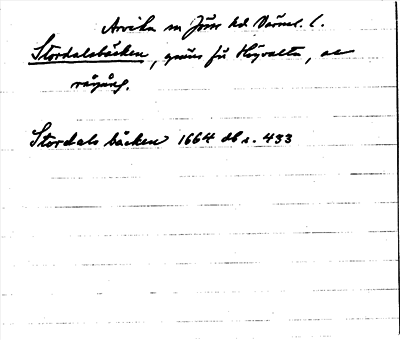 Arvika sn Jösse hd Värml. l.
Stordalsbäcken, gräns fr Högvalta, se
rågång.
Stordals bäcken 1664 db s. 433